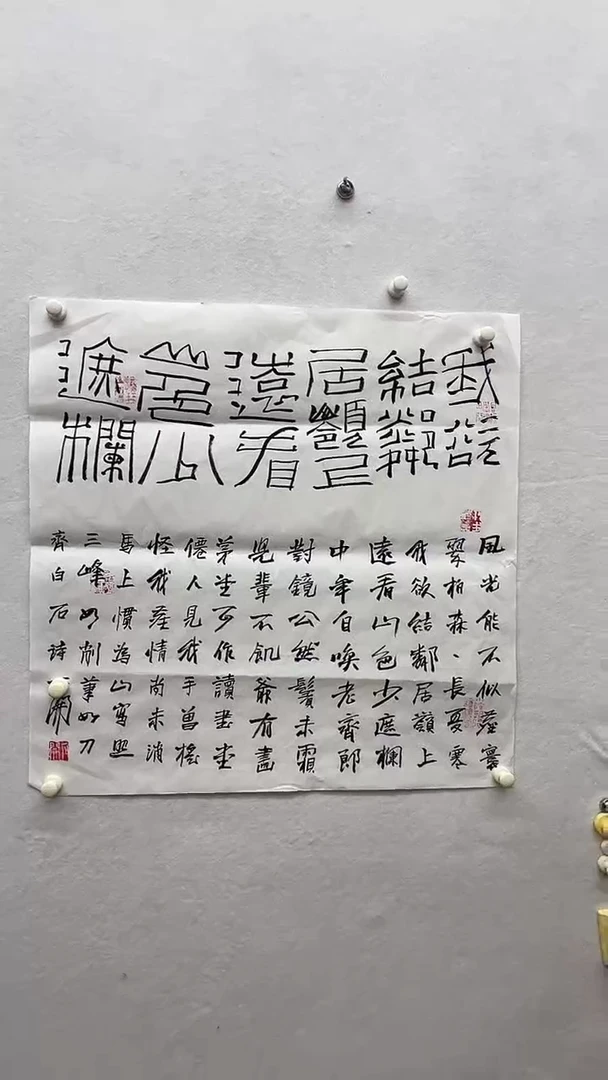 我欲
結鄰
居嶺上
遠看
山色少
遮欄
風光能不似塵寰
翠柏森、長夏寒
我欲結鄰居嶺上
遠看山色少遮欄
中年自喚老齊郎
對鏡公然鬢未霜
兒輩不飢爺有畫
茅堂可作讀書堂
僊人見我手曾搖
怪我塵情尚未消
馬上慣為山寫照
三峰如削筆如刀
齊白石詩